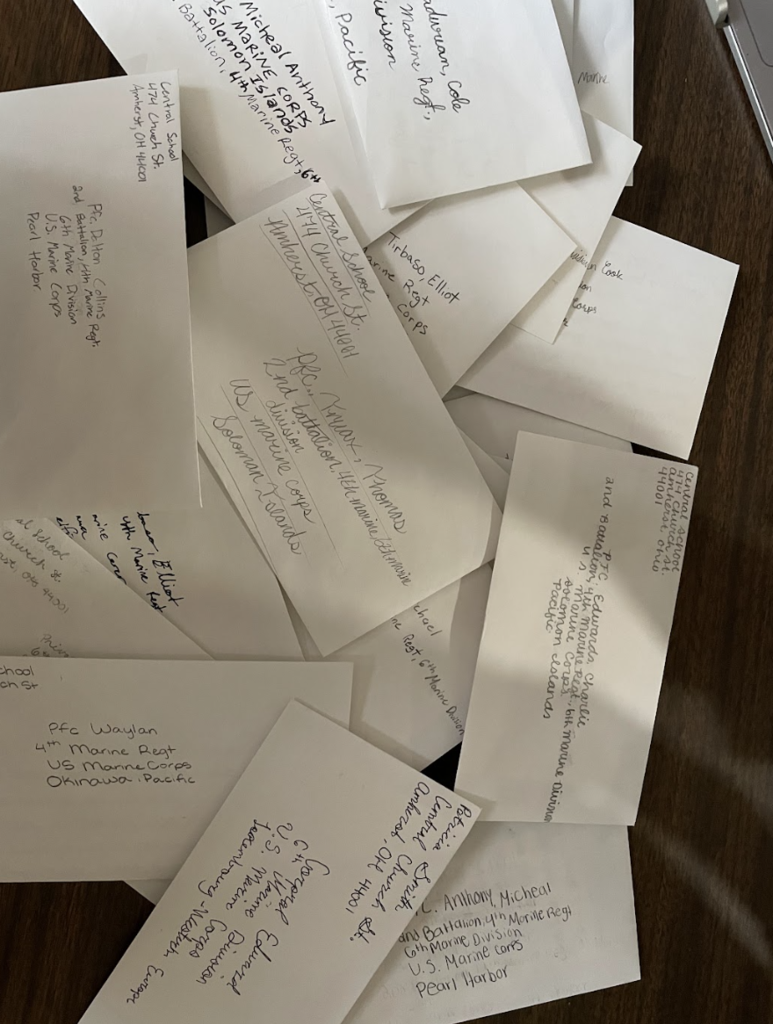 Micheal Anthony
US MARINE CORPS
Solomon Islands
Battalion, 4th Marine Regt, 6th
Cole
Marine Regt,
Division
Pacific
Marine
Central School
474 Church St.
Amherst, OH 44001
Pfc. Delton, Collins
2nd Battalion, 4th Marine Regt.
6th Marine Division
U.S. Marine Corps
Pearl Harbor
Central School
474 Church St.
Amherst, OH 44001
Pfc., Truax, Thomas
2nd battalion, 4th marine, 6th marine
division
US marine corps
Soloman Islands
Tirbaso, Elliot
Regt
Corps
Cook
Corps
central school
474 church st.
amherst, ohio
44001
PFC Edwards, Charlie
2nd Battalion, 4th Marine Regt., 6th Marine Division
U.S. Marine Corps
Solomon Islands
Pacific
Elliot
4th Marine Regt
School
Church St
44001
Regt, 6th Marine Division
Pfc Waylan
4th Marine Regt
US Marine Corps
Okinawa, Pacific
Patricia Smith
Central Church St.
Amherst, OH 44001
Corporal Edward
6th Marine Division
U.S. Marine Corps
Luxembourg - Western Europe
C. Anthony, Micheal
2nd Battalion, 4th Marine Regt
6th Marine Division
U.S. Marine Corps
Pearl Harbor